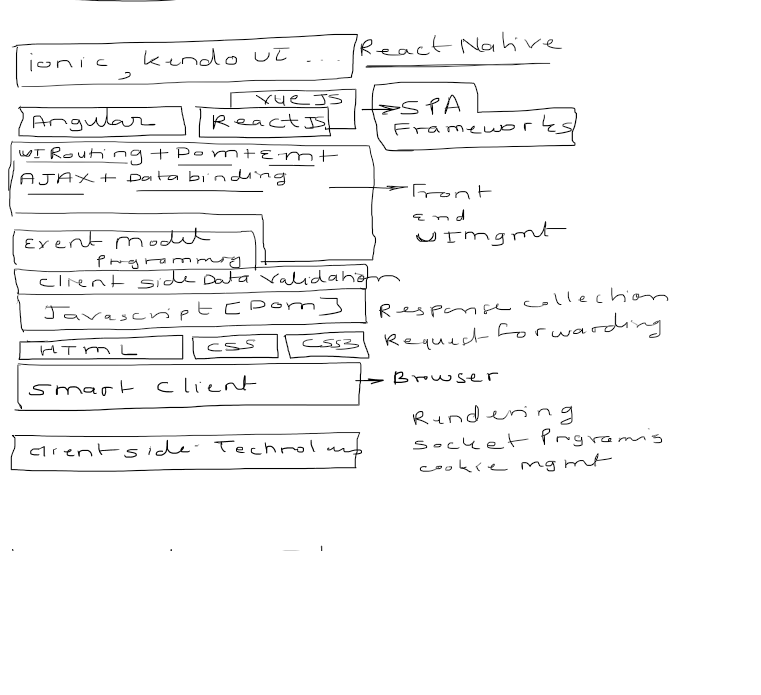 ionic, kendo UI ... React Native
VueJS
Angular ReactJS SPA
Frameworks
UI Routing + Dom + Em +
AJAX + Data binding
Front
End
UI mgmt
Event Model
Programming
Client side Data Validation
Javascript [Dom] Response collection
Request forwarding
HTML CSS CSS3
Smart Client Browser
Rendering
Socket Prgramis
cookie mgmt
client side Technol